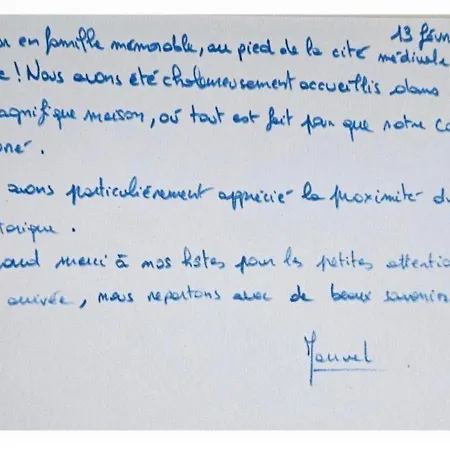 13 févr
en famille mémorable, au pied de la cité médiévale
! Nous avons été chaleureusement accueillis dans
agnifique maison, où tout est fait pour que notre co
avons particulièrement apprécié la proximité du
torique.
and merci à nos hôtes pour les petites attentio
arrivée, nous repartons avec de beaux souvenirs